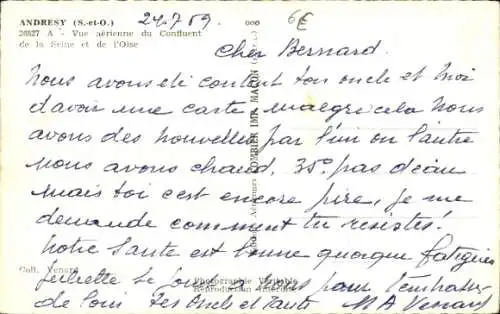 ANDRESY (S.-et-O.) 24.7.59 000 6€
26627 A - Vue aérienne du Confluent
de la Seine et de l'Oise
Cher Bernard.
Nous avons été content ton oncle et moi
d'avoir une carte malgré cela nous
avons des nouvelles par l'un ou l'autre
nous avons chaud. 35° pas d'eau
mais toi c'est encore pire, je me
demande comment tu résistes!
Notre santé est bonne quoique fatiguée
Coll. Venard
Juliette se pour t'embrasser
Photographie Véritable
Reproduction Interdite
de loin Tes Oncle et Tante M A Venard
COMBIER IMP. MACON